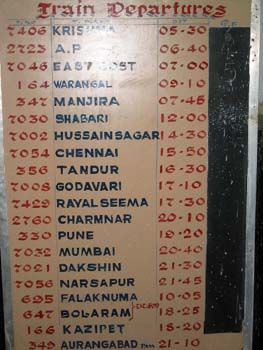 Train Departures
7406 KRISHNA 05-30
2723 A.P 06-40
7046 EAST COST 07-00
164 WARANGAL 09-10
347 MANJIRA 07-45
7030 SHABARI 12-00
7002 HUSSAINSAGAR 14-30
7054 CHENNAI 15-50
356 TANDUR 16-30
7008 GODAVARI 17-10
7429 RAYALSEEMA 17-30
2760 CHARMNAR 20-10
330 PUNE 19-20
7032 MUMBAI 20-40
7021 DAKSHIN 21-10
7056 NARSAPUR 21-45
695 FALAKNUMA 10-05
647 BOLARAM 18-25
166 KAZIPET 18-20
349 AURANGABAD 21-35